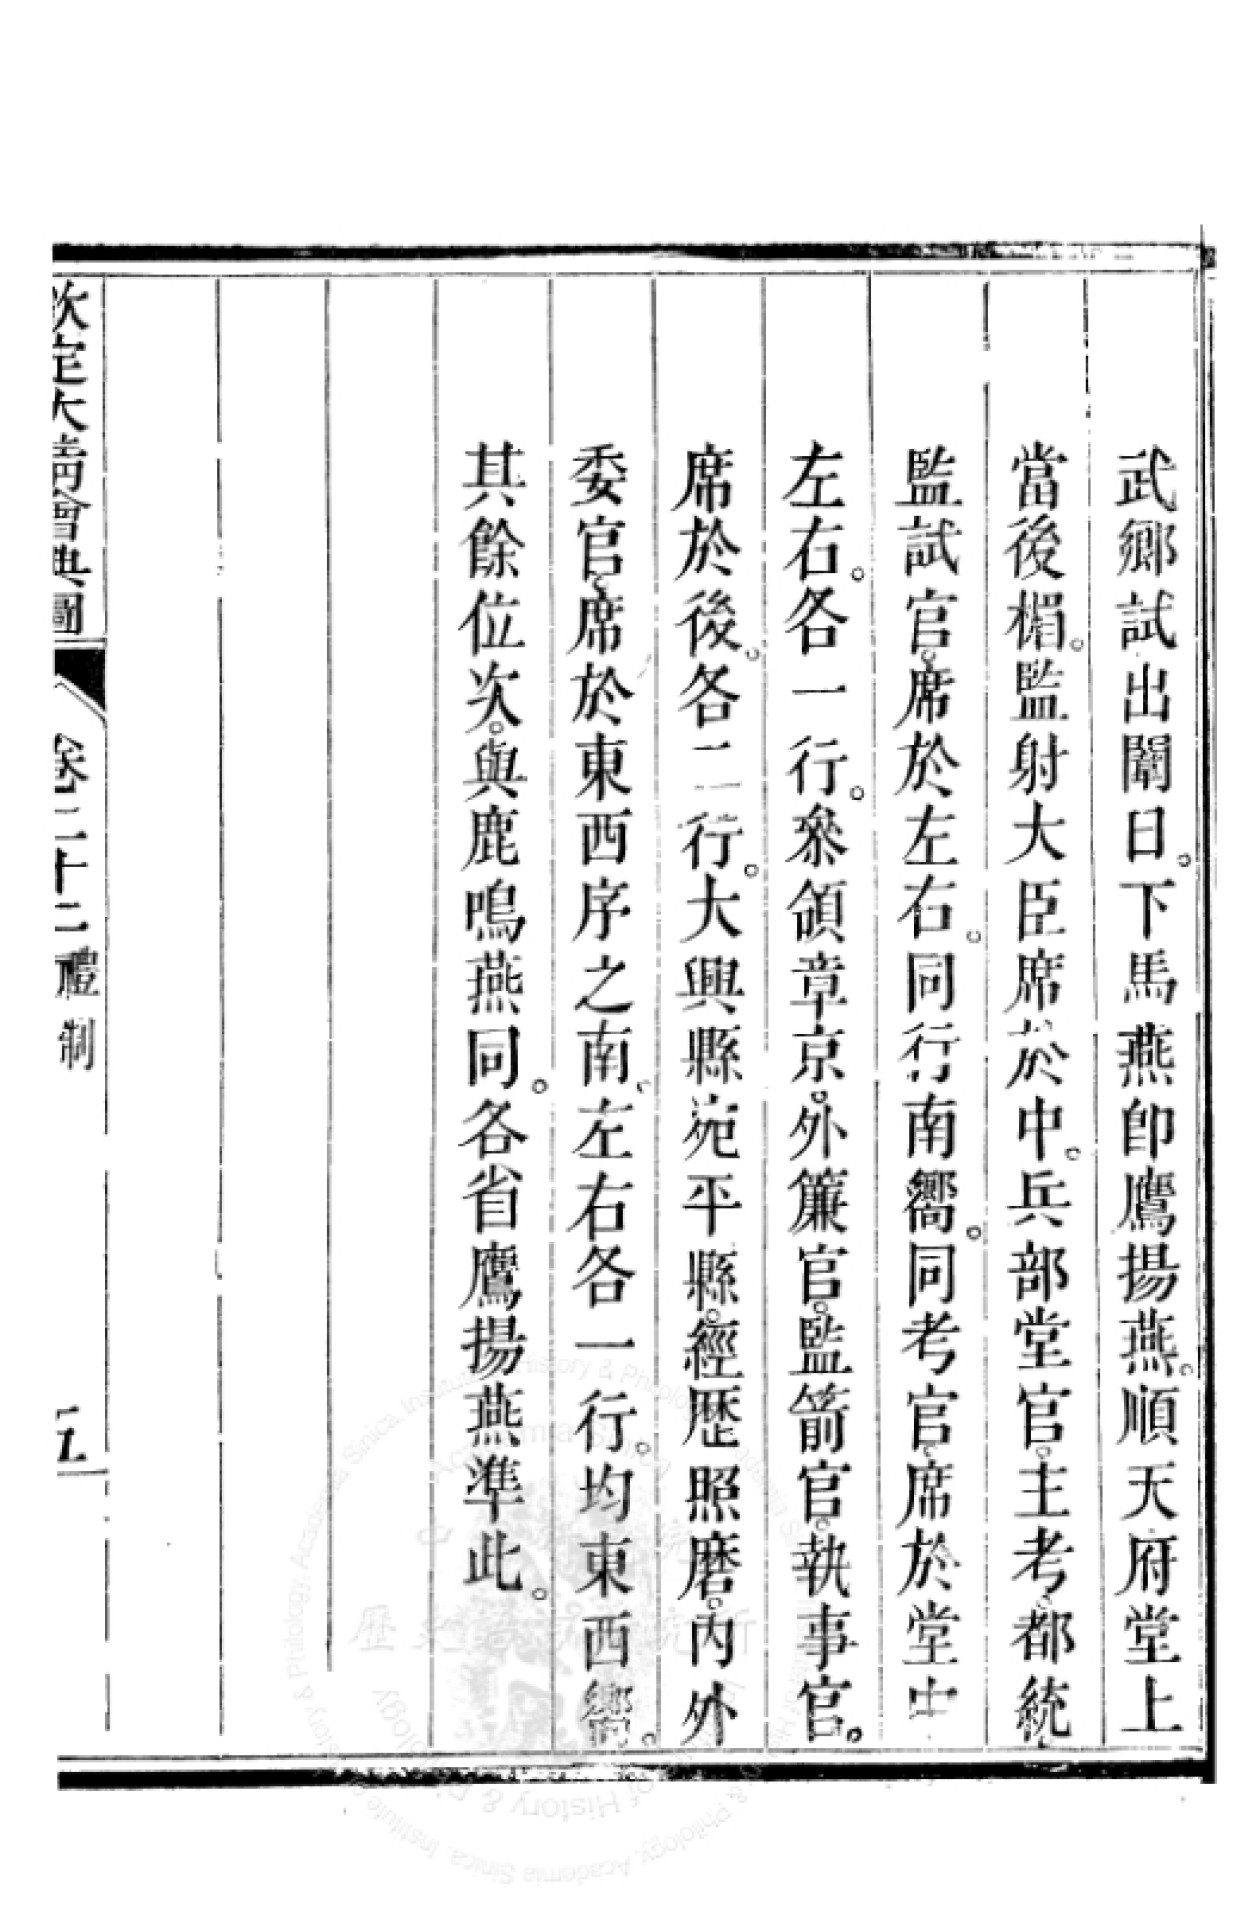 武鄉試出闈日。下馬燕卽鷹揚燕。順天府堂上
當後楣。監射大臣席於中。兵部堂官。主考。都統
監試官。席於左右。同行南嚮。同考官。席於堂中
左右。各一行。叅領章京。外簾官。監箭官。執事官。
席於後。各二行。大興縣宛平縣。經歷照磨。內外
委官。席於東西序之南。左右各一行。均東西嚮。
其餘位次。與鹿鳴燕同。各省鷹揚燕準此。
欽定大清會典圖 卷二十二 禮制 五